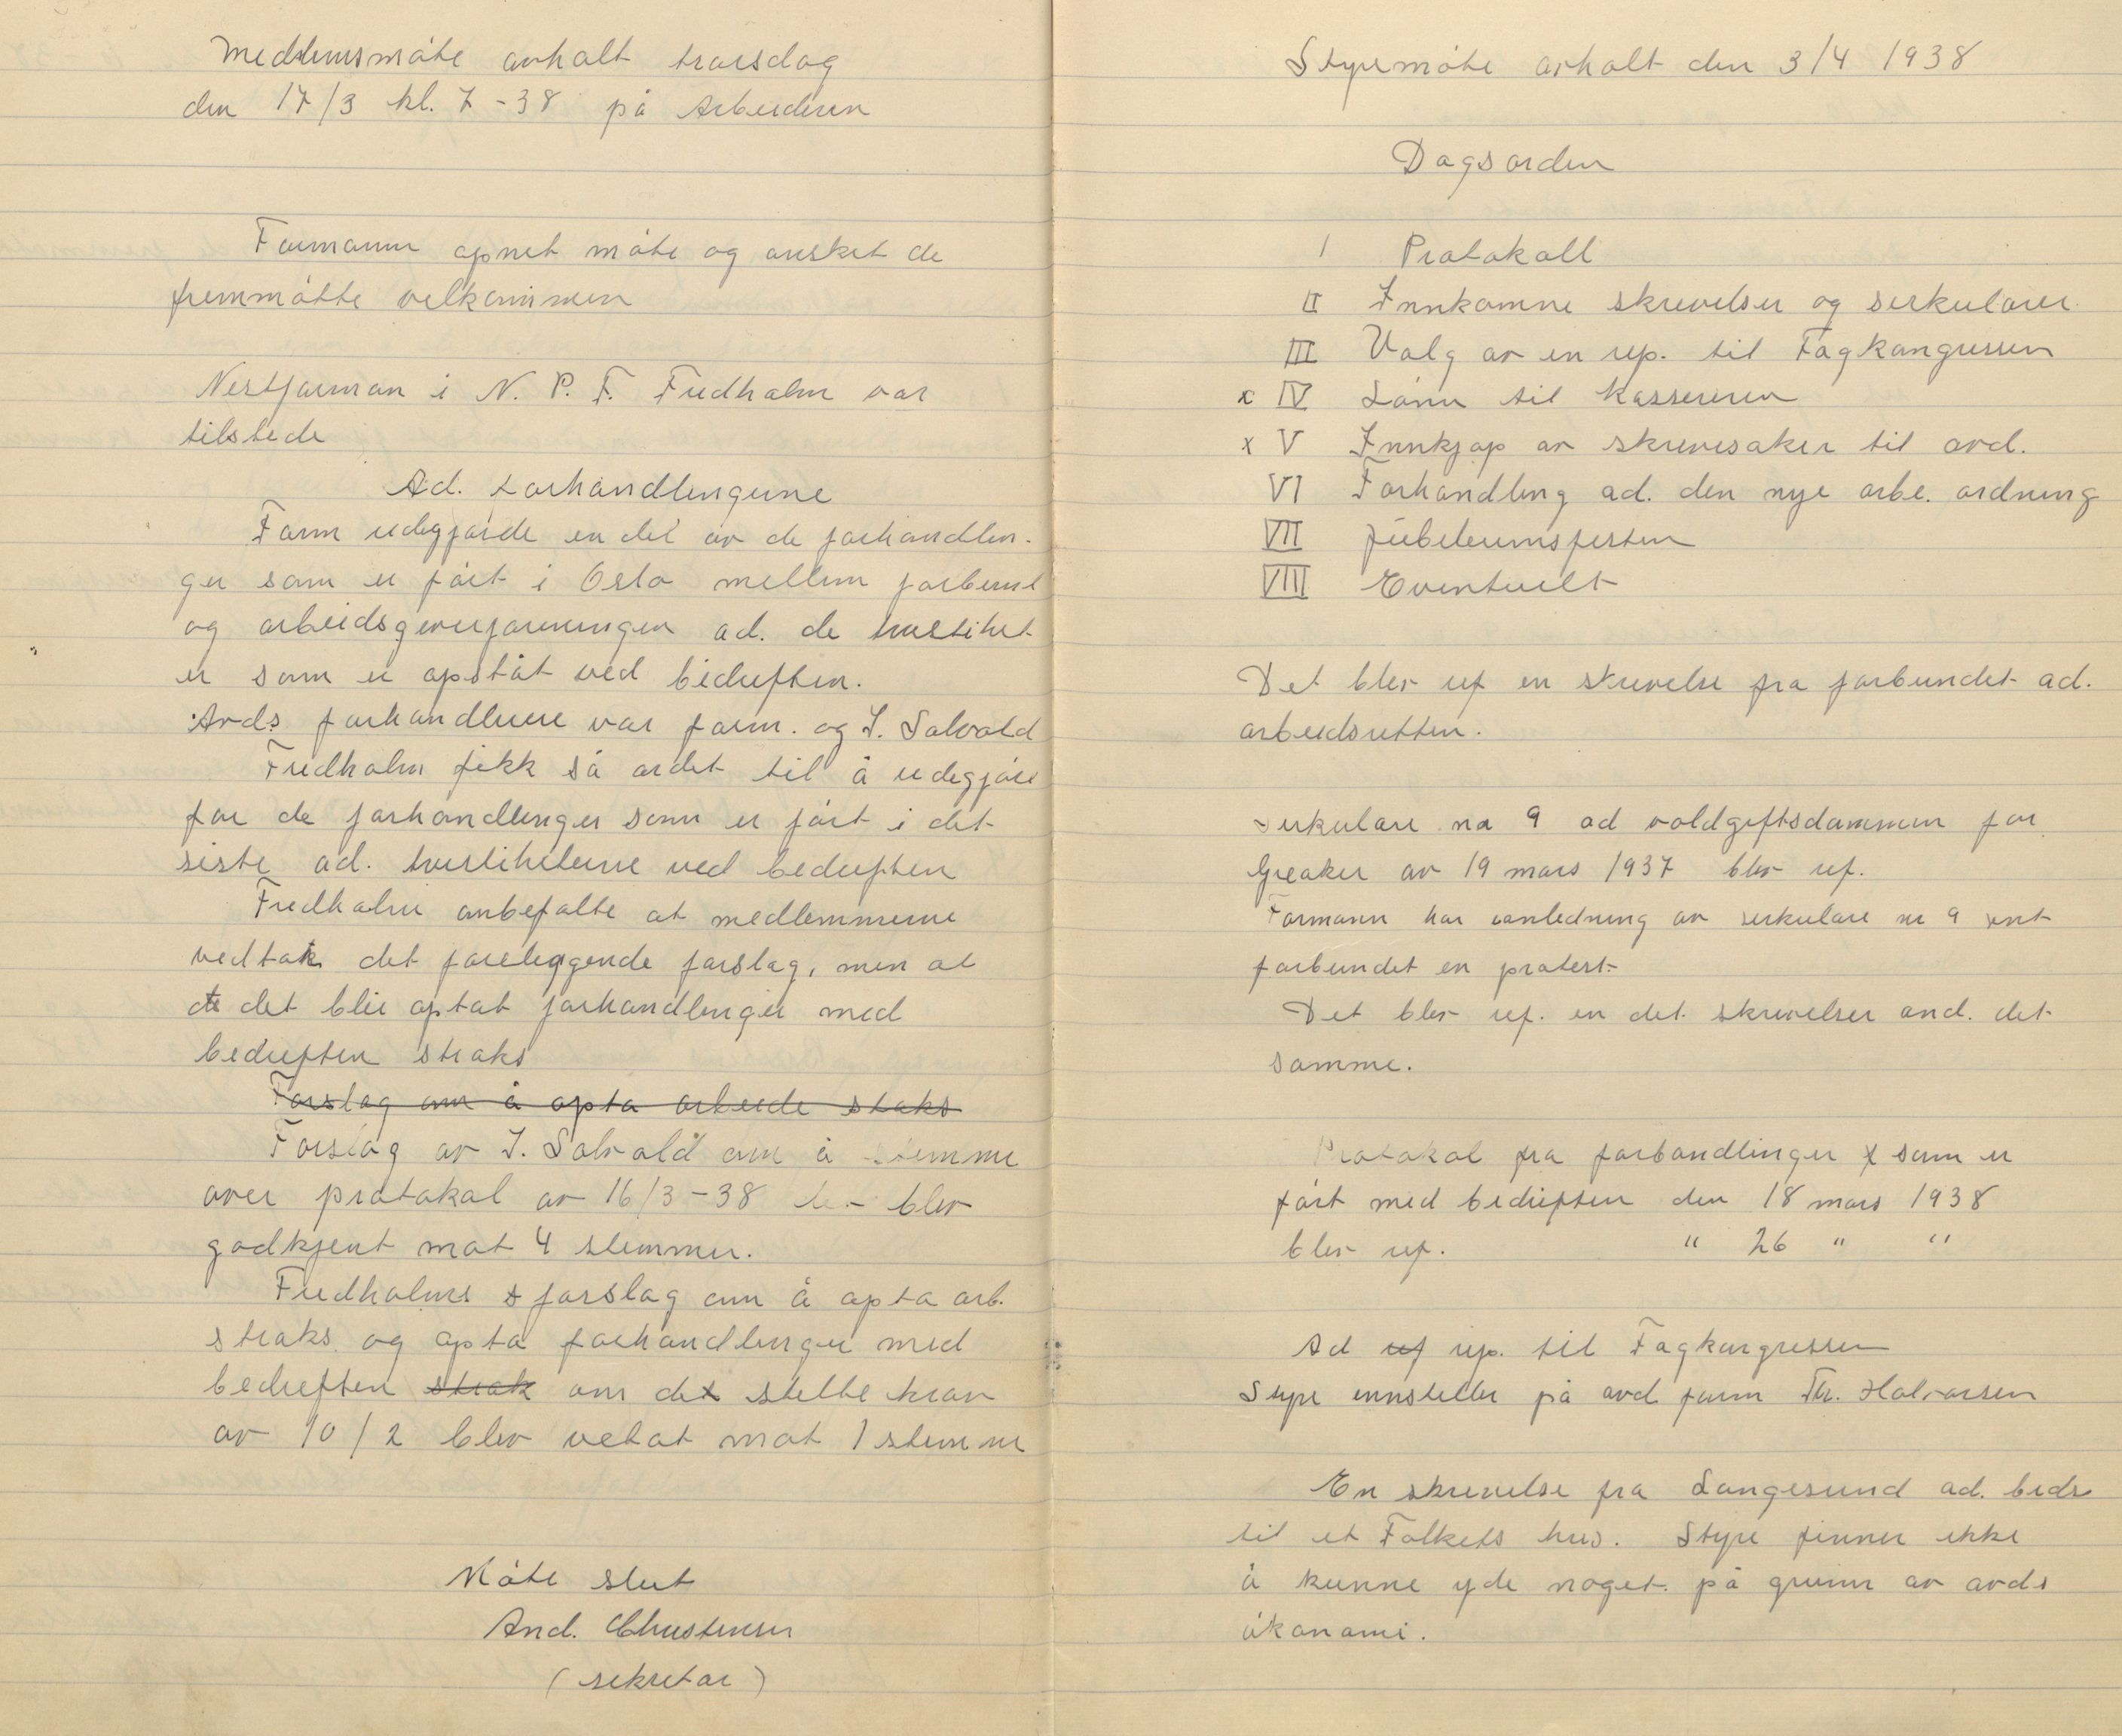 Medlemsmøte avholt torsdag
den 17/3 kl. 7 - 38 på Arbeideren
Formann åpnet møte og ønsket de
fremmøtte velkommen
Nestforman i N. P. F. Fredholm var
tilstede
Ad. forhandlingerne
Form redegjorde en del av de forhandlin-
ger som er ført i Oslo mellem forbund
og arbeidsgiverforeningen ad. de tvistihet
er som er opståt ved bedriften.
Avds forhandlere var form. og I. Solvold
Fredholm fikk så ordet til å redegjøre
for de forhandlinger som er ført i det
siste ad. tvistiheterne ved bedriften
Fredholm anbefalte at medlemmerne
vedtok det foreliggende forslag, men at
det blir optat forhandlinger med
bedriften straks
Forslag om å opta arbeide staks
Forslag av I. Solvold om å stemme
over protokol av 16/3 - 38 blev
godkjent mot 4 stemmer.
Fredholms forslag om å opta arb.
straks og opta forhandlinger med
bedriften strak om det stelte krav
av 10/2 blev vetat mot 1 stemme
Møte slut
And. Christensen
(sekretær)
Styremøte avholt den 3/4 1938
Dagsorden
I Protokoll
II Innkomne skrivelser og serkulærer.
III Valg av en rep. til Fagkongressen
x IV Lønn til kassereren
x V Innkjøp av skrivesaker til avd.
VI Forhandling ad. den nye arbe. ordning
VII Jubileumsfesten
VIII Eventuelt
Det blev ref en skrivelse fra forbundet ad.
arbeidsretten.
Serkulære no 9 ad voldgiftsdommen for
Greaker av 19 mars 1937 blev ref.
Formann har i anledning av serkulære nr 9 sent
forbundet en protest
Det blev ref. en del skrivelser and. det
samme.
Protokol fra forhandlinger som er
ført med bedriften den 18 mars 1938
blev ref. " 26 " "
Ad ref rep. til Fagkongressen
Styre innstiller på avd form Th. Halvorsen
En skrivelse fra Langesund ad. bidr
til et Folkets hus. Styre finner ikke
å kunne yde noget på grunn av avds
økonomi.